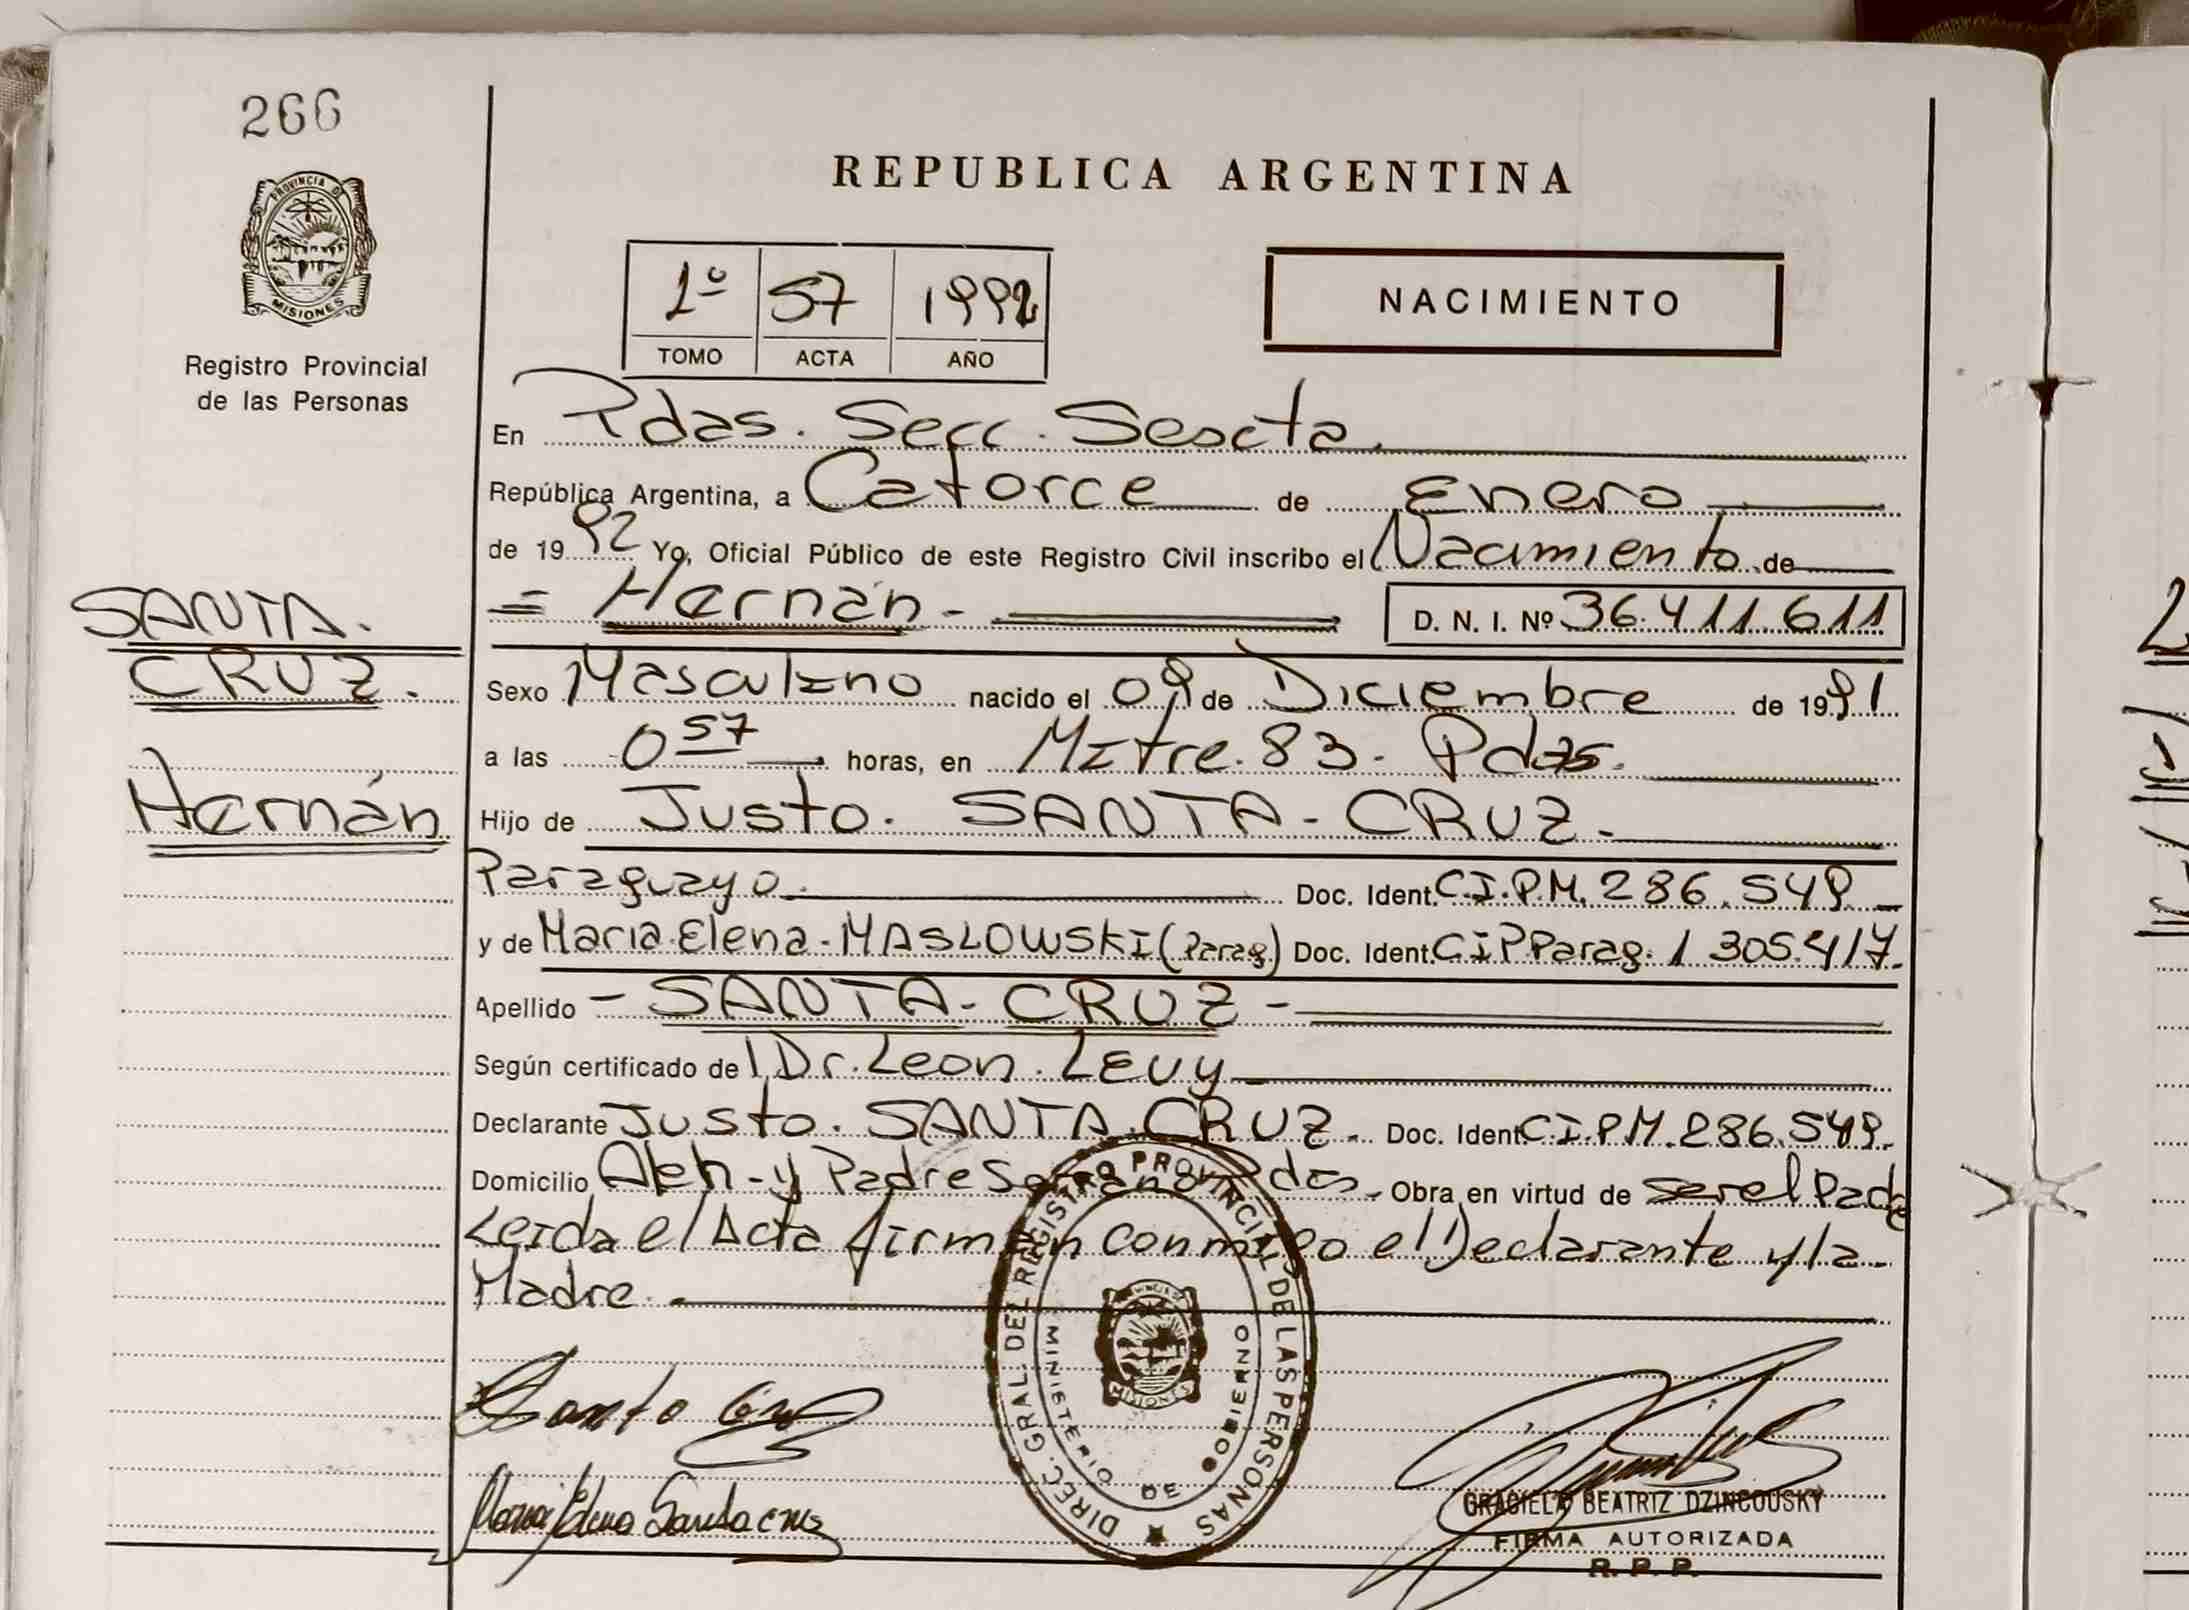 266
PROVINCIA DE
MISIONES
Registro Provincial
de las Personas
REPUBLICA ARGENTINA
1º 57 1992
TOMO ACTA AÑO
NACIMIENTO
En Pdas. Secc. Sexta.
República Argentina, a Catorce de Enero
de 1992 Yo, Oficial Público de este Registro Civil inscribo el Nacimiento de
= Hernán - D. N. I. Nº 36.411.611
SANTA.
CRUZ.
Hernán
Sexo Masculino nacido el 09 de Diciembre de 1991
a las 0 57 horas, en Mitre. 83. Pdas.
Hijo de Justo. SANTA-CRUZ.
Paraguayo. Doc. Ident. C.I.P.M. 286.549.
y de Maria.Elena-MASLOWSKI (Parag) Doc. Ident. CIPParag. 1 305.417.
Apellido - SANTA-CRUZ -
Según certificado del Dr. Leon. LEVY
Declarante Justo. SANTA.CRUZ. Doc. Ident C.I.P.M. 286.549.
Domicilio - y Padre Pdas. Obra en virtud de ser el Padre
Leida el Acta firman conmigo el Declarante y la
Madre.
Santa Cruz
Maria Elena Santacruz
DIREC. GRAL. DEL REGISTRO PROVINCIAL DE LAS PERSONAS
MINISTERIO DE GOBIERNO
MISIONES
GRACIELA BEATRIZ DZINCOUSKY
FIRMA AUTORIZADA
R. P. P.